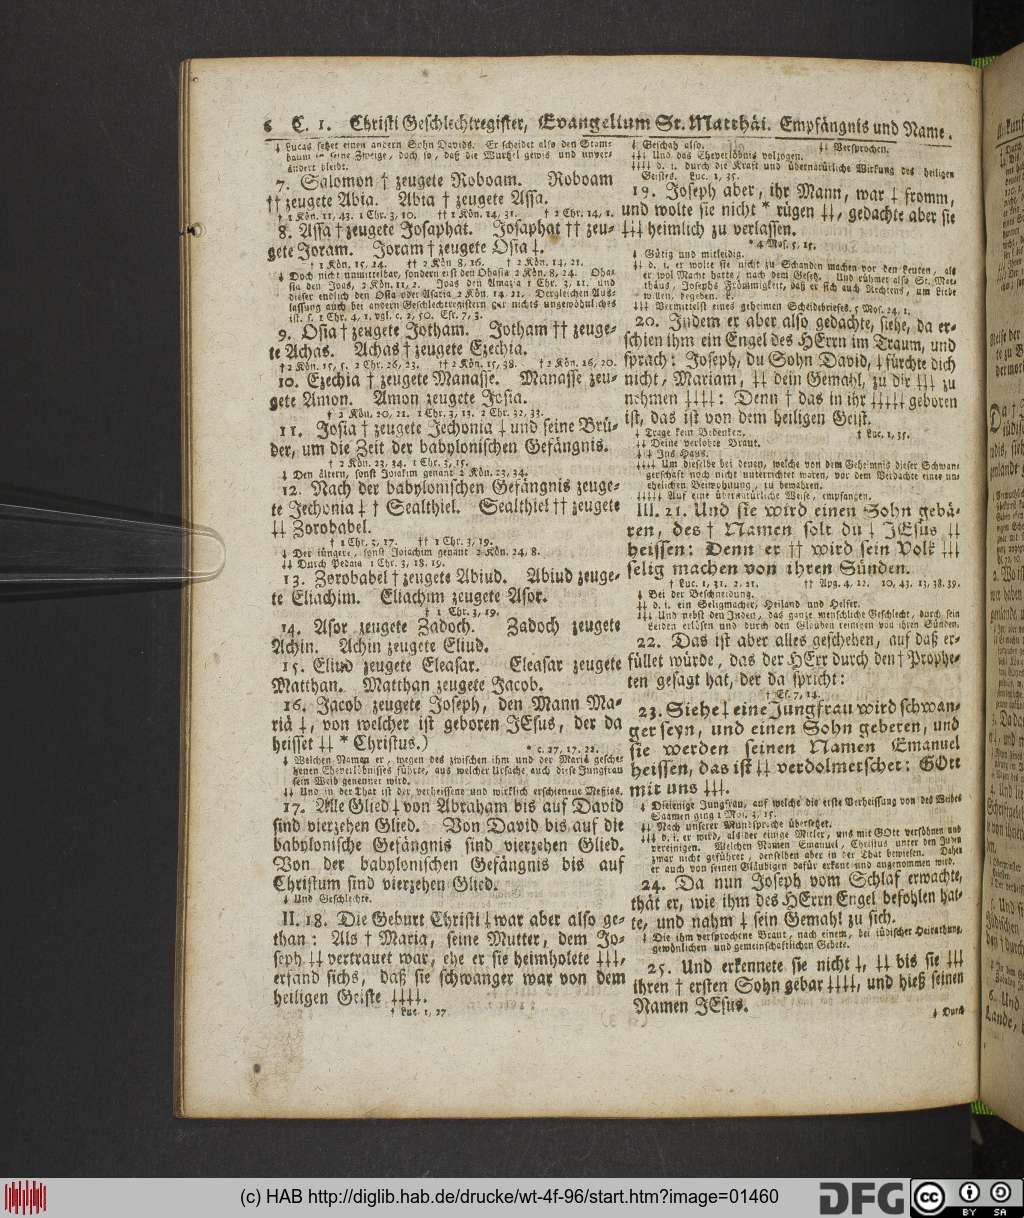 6 C. 1. Christi Geschlechtregister, Evangelium St. Matthäi. Empfängnis und Name.
‡ Lucas setzet einen andern Sohn Davids. Er scheidet also den Stam-
baum in seine Zweige, doch so, daß die Wurtzel gewis und unver-
ändert bleibt.
7. Salomon † zeugete Roboam. Roboam
†† zeugete Abia. Abia † zeugete Assa.
† 1 Kön. 11, 43. 1 Chr. 3, 10. †† 1 Kön. 14, 31. † 2 Chr. 14, 1.
8. Assa † zeugete Josaphat. Josaphat †† zeu-
gete Joram. Joram † zeugete Osia ‡.
† 1 Kön. 15, 24. †† 2 Kön. 8, 16. † 2 Kön. 14, 21.
‡ Doch nicht unmittelbar, sondern erst den Ohasia 2 Kön. 8, 24. Oha-
sia den Joas, 2 Kön. 11, 2. Joas den Amazia 1 Chr. 3, 11. und
dieser endlich den Osia oder Asaria 2 Kön. 14. 21. Dergleichen Aus-
lassung auch bei andern Geschlechtregistern gar nichts ungewöhnliches
ist. s. 1 Chr. 4, 1. vgl. c. 2, 50. Esr. 7, 3.
9. Osia † zeugete Jotham. Jotham †† zeuge-
te Achas. Achas † zeugete Ezechia.
† 2 Kön. 15, 5. 2 Chr. 26, 23. †† 2 Kön. 15, 38. † 2 Kön. 16, 20.
10. Ezechia † zeugete Manasse. Manasse zeu-
gete Amon. Amon zeugete Josia.
† 2 Kön. 20, 21. 1 Chr. 3, 13. 2 Chr. 32, 33.
11. Josia † zeugete Jechonia ‡ und seine Brü-
der, um die Zeit der babylonischen Gefängnis.
† 2 Kön. 23, 34. 1 Chr. 3, 15.
‡ Den ältern, sonst Jojakim genant 2 Kön. 23, 34.
12. Nach der babylonischen Gefängnis zeuge-
te Jechonia ‡ † Sealthiel. Sealthiel †† zeugete
‡‡ Zorobabel.
† 1 Chr. 3, 17. †† 1 Chr. 3, 19.
‡ Der jüngere, sonst Jojachim genant 2 Kön. 24, 8.
‡‡ Durch Pedaja 1 Chr. 3, 18. 19.
13. Zorobabel † zeugete Abiud. Abiud zeuge-
te Eliachim. Eliachim zeugete Asor.
† 1 Chr. 3, 19.
14. Asor zeugete Zadoch. Zadoch zeugete
Achin. Achin zeugete Eliud.
15. Eliud zeugete Eleasar. Eleasar zeugete
Matthan. Matthan zeugete Jacob.
16. Jacob zeugete Joseph, den Mann Ma-
riä ‡, von welcher ist geboren JEsus, der da
heisset ‡‡ * Christus.)
* c. 27, 17. 22.
‡ Welchen Namen er, wegen des zwischen ihm und der Mariä gesche-
henen Eheverlöbnisses führte, aus welcher Ursache auch diese Jungfrau
sein Weib genennet wird.
‡‡ Und in der That ist der verheissene und wirklich erschienene Messias.
17. Alle Glied ‡ von Abraham bis auf David
sind vierzehen Glied. Von David bis auf die
babylonische Gefängnis sind vierzehen Glied.
Von der babylonischen Gefängnis bis auf
Christum sind vierzehen Glied.
‡ Und Geschlechte.
II. 18. Die Geburt Christi ‡ war aber also ge-
than: Als † Maria, seine Mutter, dem Jo-
seph ‡‡ vertrauet war, ehe er sie heimholete ‡‡‡,
erfand sichs, daß sie schwanger war von dem
heiligen Geiste ‡‡‡‡.
† Luc. 1, 27
‡ Geschah also. ‡‡ Versprochen.
‡‡‡ Und das Eheverlöbnis volzogen.
‡‡‡‡ d. i. durch die Kraft und übernatürliche Wirkung des heiligen
Geistes. Luc. 1, 35.
19. Joseph aber, ihr Mann, war ‡ fromm,
und wolte sie nicht * rügen ‡‡, gedachte aber sie
‡‡‡ heimlich zu verlassen.
* 4 Mos. 5, 15.
‡ Gütig und mitleidig.
‡‡ d. i. er wolte sie nicht zu Schanden machen vor den Leuten, als
er wol Macht hatte, nach dem Gesetz. Und rühmet also St. Mat-
thäus, Josephs Frömmigkeit, daß er sich auch Rechtens, um Liebe
willen, begeben. L.
‡‡‡ Vermittelst eines geheimen Scheidebriefes. 5 Mos. 24, 1.
20. Indem er aber also gedachte, siehe, da er-
schien ihm ein Engel des HErrn im Traum, und
sprach: Joseph, du Sohn David, ‡ fürchte dich
nicht, Mariam, ‡‡ dein Gemahl, zu dir ‡‡‡ zu
nehmen ‡‡‡‡: Denn † das in ihr ‡‡‡‡‡ geboren
ist, das ist von dem heiligen Geist.
‡ Trage kein Bedenken. † Luc. 1, 35.
‡‡ Deine verlobte Braut.
‡‡‡ Ins Haus.
‡‡‡‡ Um dieselbe bei denen, welche von dem Geheimnis dieser Schwan-
gerschaft noch nicht unterrichtet waren, vor dem Verdachte einer un-
ehelichen Beiwohnung, zu bewahren.
‡‡‡‡‡ Auf eine übernatürliche Weise, empfangen.
III. 21. Und sie wird einen Sohn gebä-
ren, des † Namen solt du ‡ JEsus ‡‡
heissen: Denn er †† wird sein Volk ‡‡‡
selig machen von ihren Sünden.
† Luc. 1, 31. 2. 21. †† Apg. 4, 12. 10, 43. 13, 38. 39.
‡ Bei der Beschneidung.
‡‡ d. i. ein Seligmacher, Heiland und Helfer.
‡‡‡ Und nebst den Juden, das ganze menschliche Geschlecht, durch sein
Leiden erlösen und durch den Glauben reinigen von ihren Sünden.
22. Das ist aber alles geschehen, auf daß er-
füllet würde, das der HErr durch den † Prophe-
ten gesagt hat, der da spricht:
† Es. 7, 14.
23. Siehe ‡ eine Jungfrau wird schwan-
ger seyn, und einen Sohn geberen, und
sie werden seinen Namen Emanuel
heissen, das ist ‡‡ verdolmetschet: GOtt
mit uns ‡‡‡.
‡ Diejenige Jungfrau, auf welche die erste Verheissung von des Weibes
Saamen ging 1 Mos. 3, 15.
‡‡ Nach unserer Mundsprache übersetzet.
‡‡‡ d. i. er wird, als der einige Mitler, uns mit GOtt versöhnen und
vereinigen. Welchen Namen Emanuel, Christus unter den Juden
zwar nicht geführet, denselben aber in der That bewiesen. Daher
er auch von seinen Gläubigen dafür erkant und angenommen wird.
24. Da nun Joseph vom Schlaf erwachte,
thät er, wie ihm des HErrn Engel befohlen hat-
te, und nahm ‡ sein Gemahl zu sich.
‡ Die ihm versprochene Braut, nach einem, bei jüdischer Heirathung,
gewönlichen und gemeinschaftlichen Gebete.
25. Und erkennete sie nicht ‡, ‡‡ bis sie ‡‡‡
ihren † ersten Sohn gebar ‡‡‡‡, und hieß seinen
Namen JEsus.
‡ Durch
(c) HAB http://diglib.hab.de/drucke/wt-4f-96/start.htm?image=01460
DFG
cc BY SA